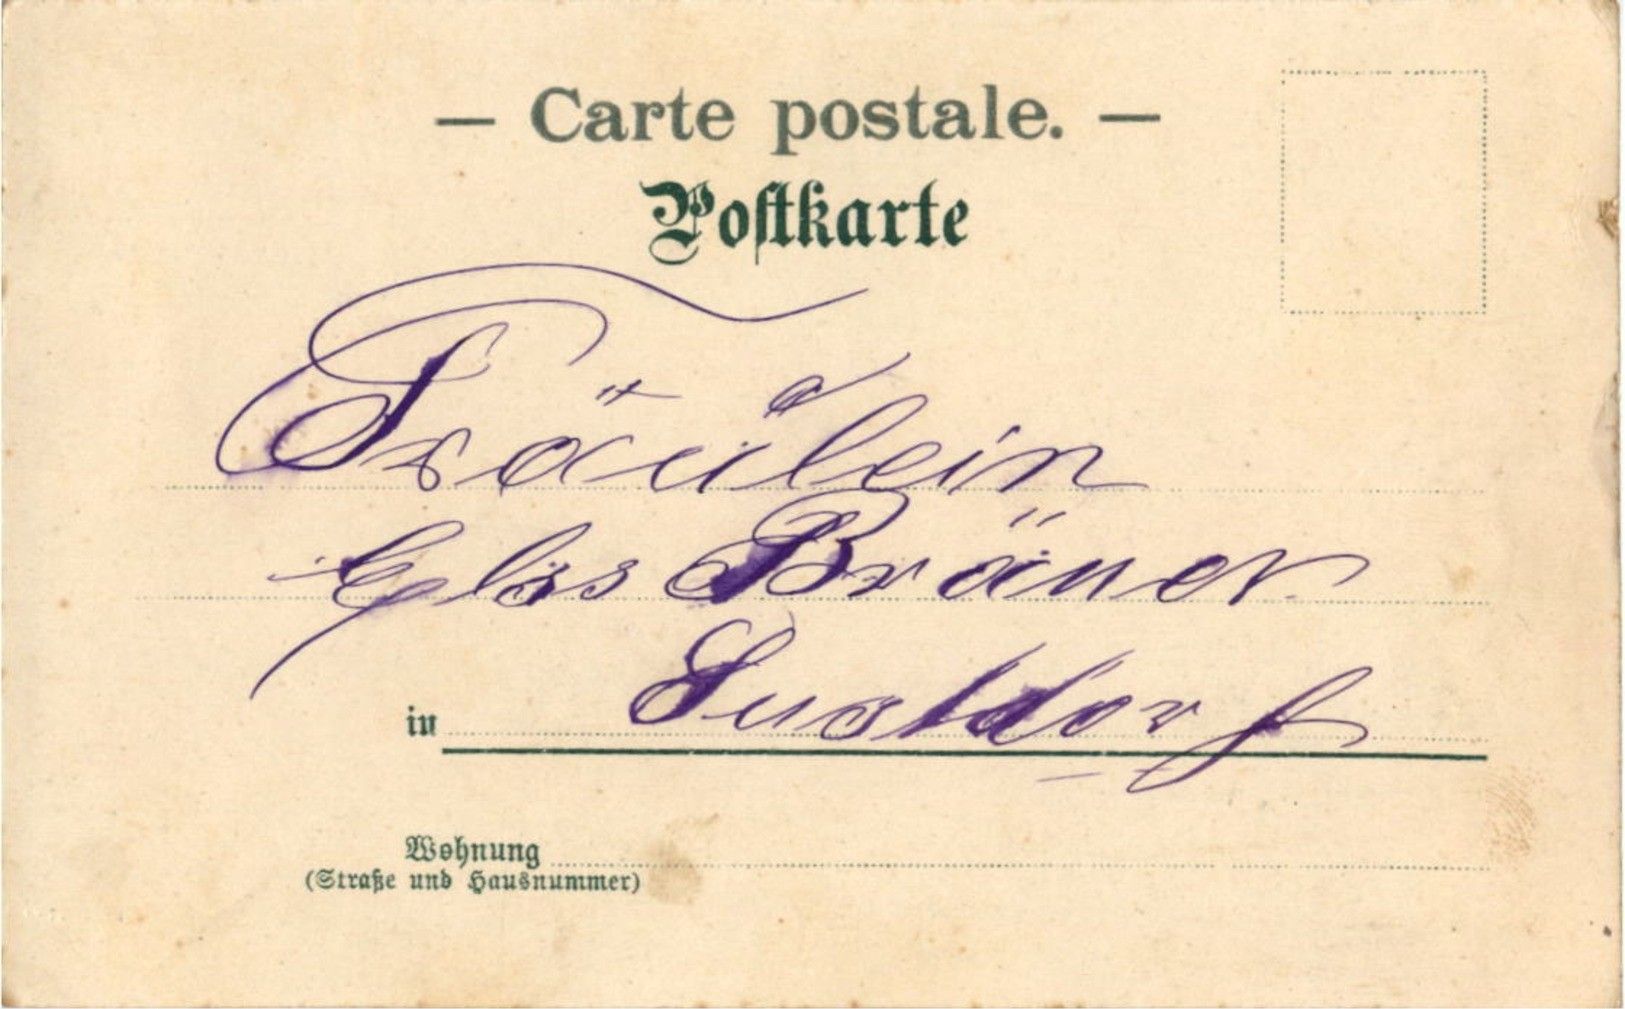 — Carte postale. —
Postkarte
Fräulein
Elss Bräuer
in Lustdorf
Wohnung
(Straße und Hausnummer)